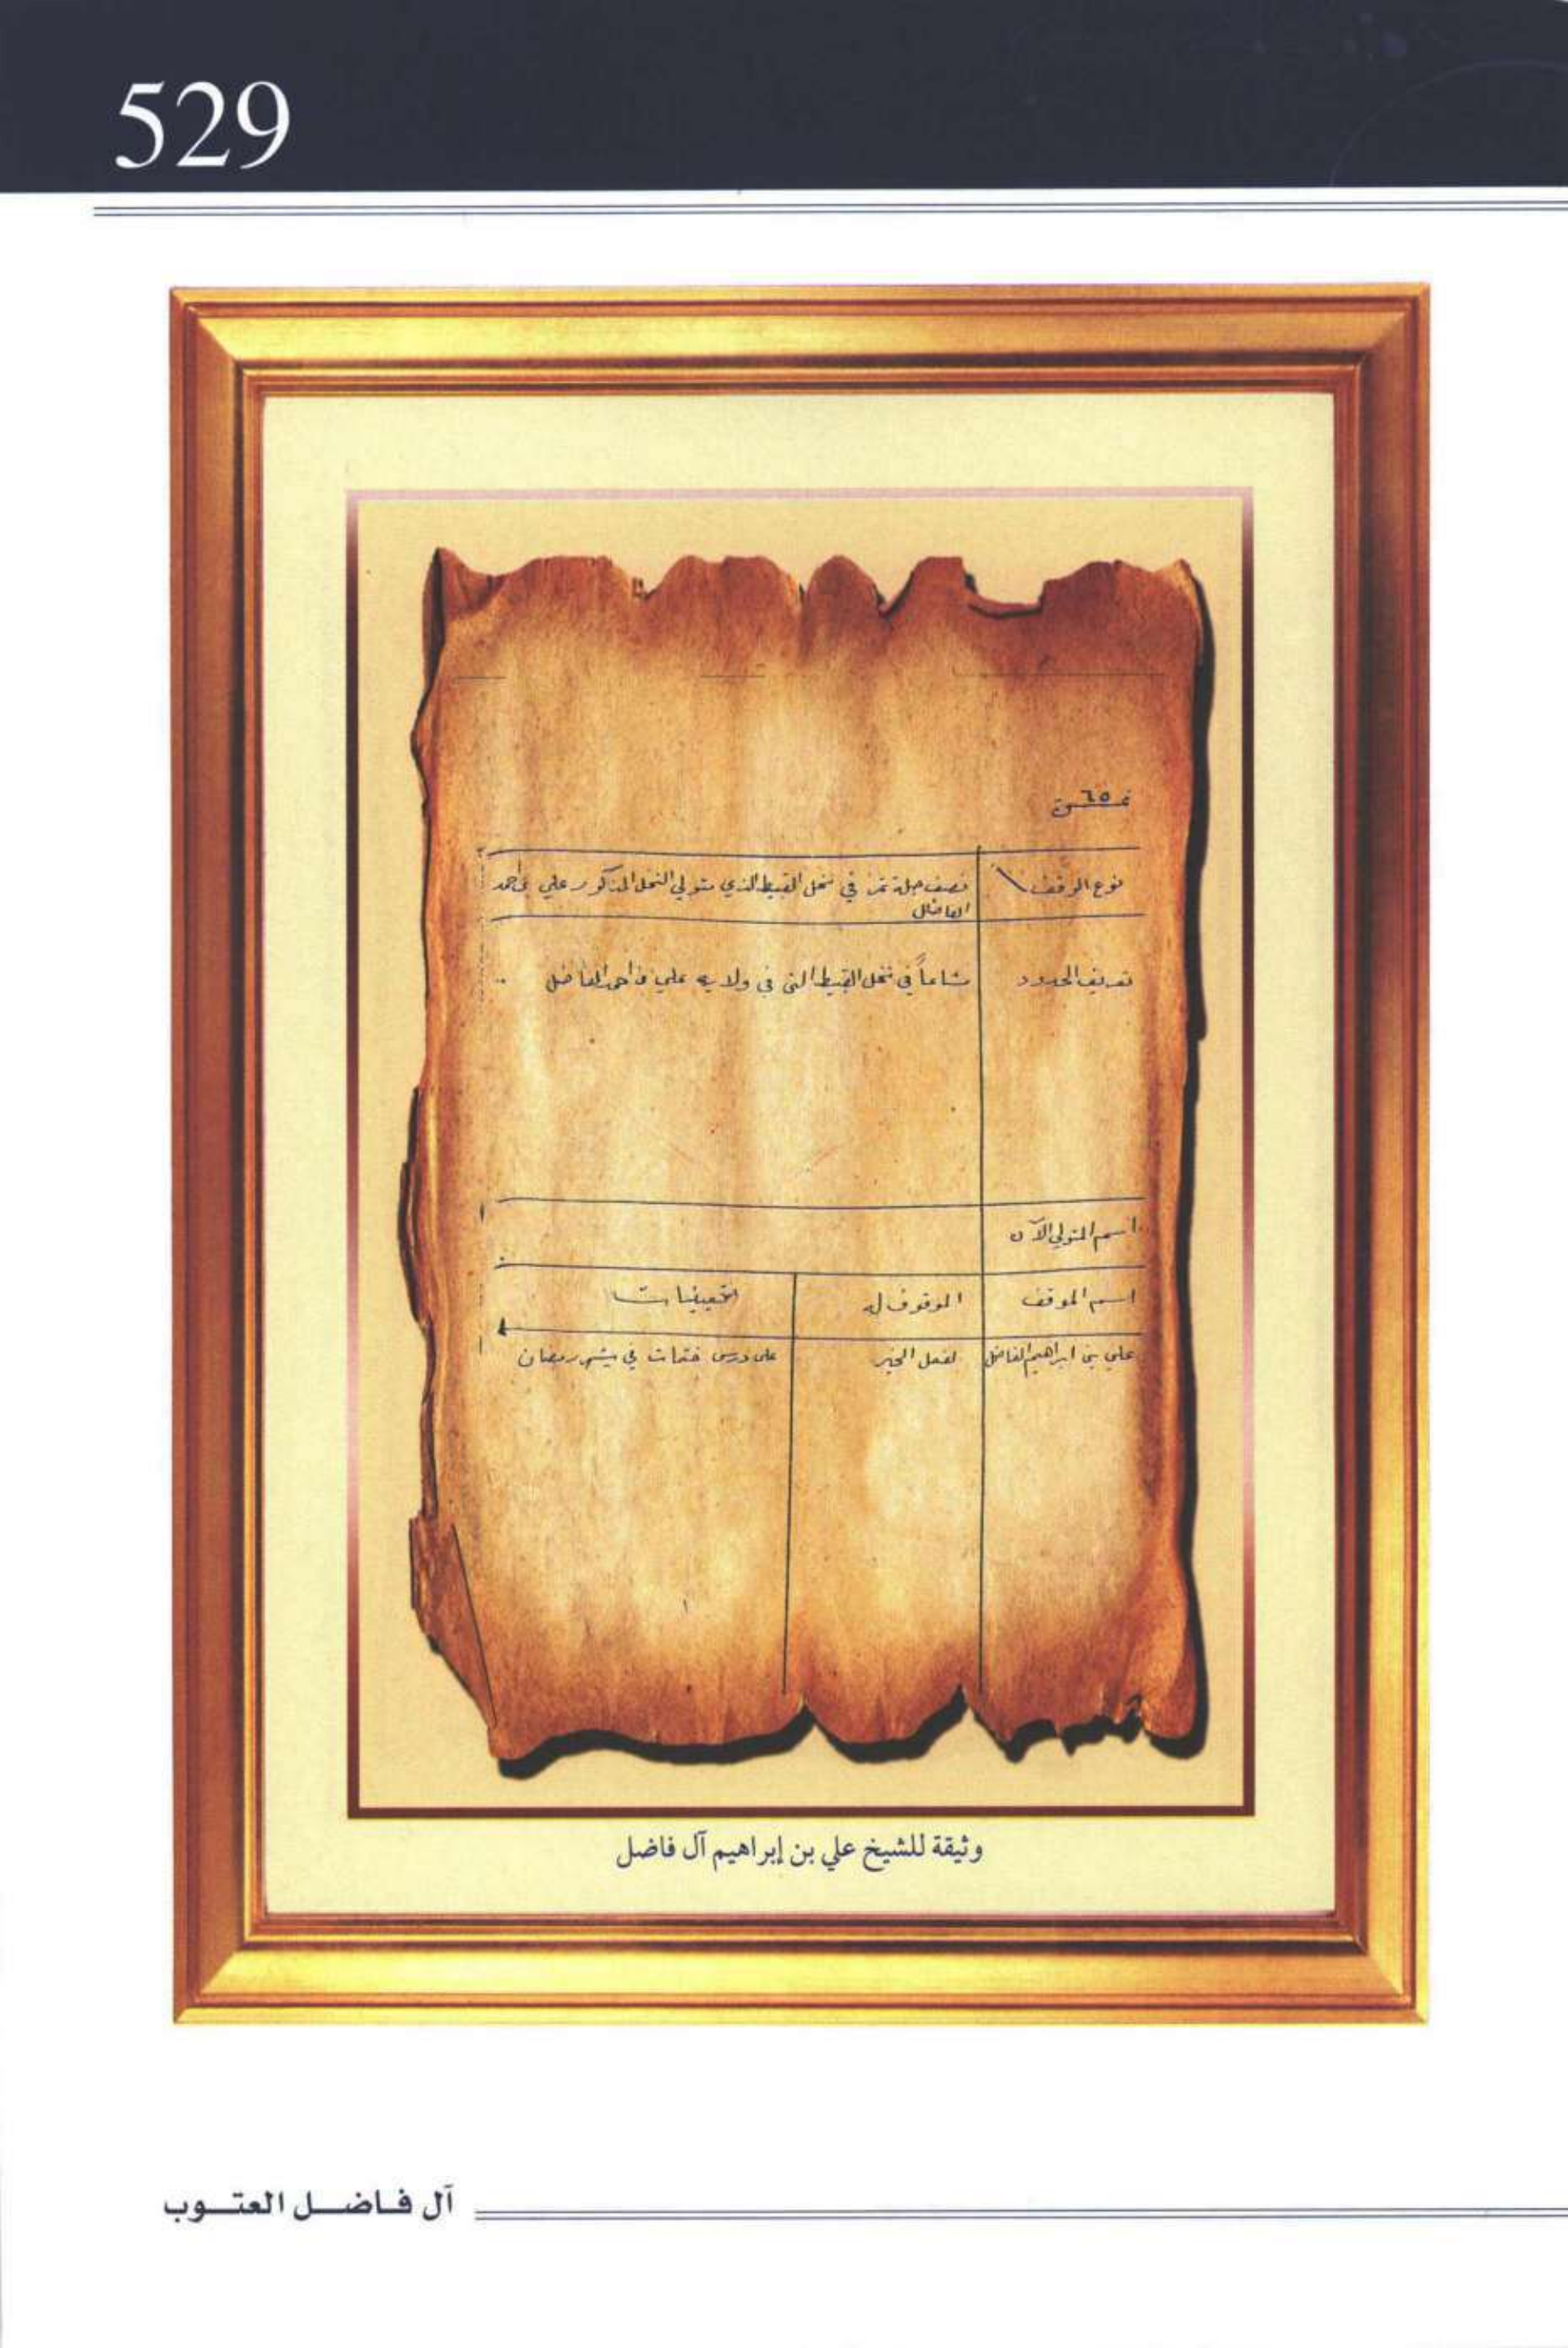 529
نمرة ٦٥
نوع الوقف
نصف جلة تمر في نخل القيط الذي متولي النخل المذكور علي بن احمد
الفاضل
تعريف الحدود
مشاعاً في نخل القيط التي في ولاية علي بن احمد الفاضل
اسم المتولي الآن
اسم الموقف
الموقوف له
علي بن ابراهيم الفاضل
لفعل الخير
على درس ختمات في شهر رمضان
وثيقة للشيخ علي بن إبراهيم آل فاضل
آل فاضل العتوب